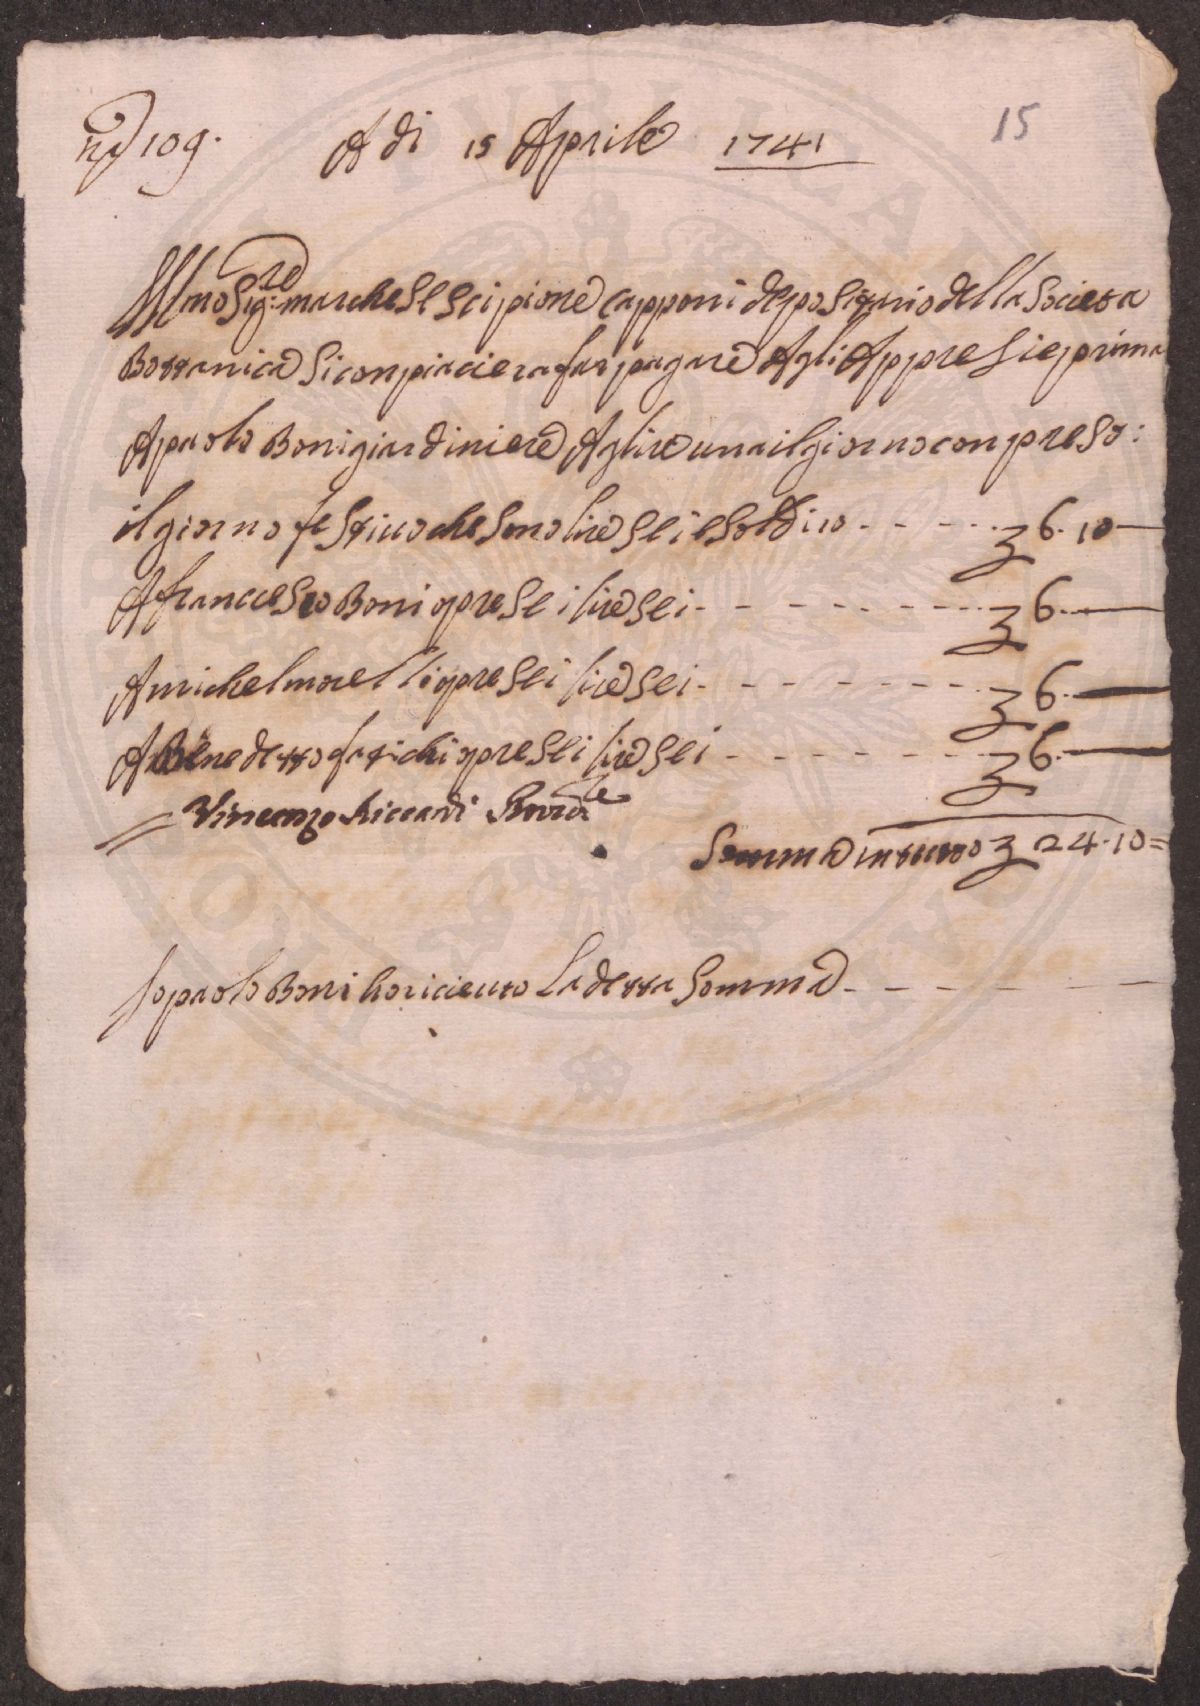 n.o 109.
A di 15 Aprile 1741
15
Ill.mo Sig.re marchese Scipione Capponi depositario della Societa
Bottanica Si conpiaciera far pagare Agli Appresi e prima
A paolo Boni giardiniere A lire una il giorno conpreso:
il giorno festiuo che Sono lire Sei e Soldi 10 - - - - - £ 6. 10 —
A franceSco Boni opre Sei lire Sei - - - - - - - £ 6. —
A michel morelli opre Sei lire Sei - - - - - - - £ 6. —
A Benedetto fatichi opre Sei lire Sei - - - - - - - £ 6. —
Vincenzo Riccardi
Somma in tutto £ 24. 10 =
Io paolo Boni ho riceuto La detta Somma - - - - -